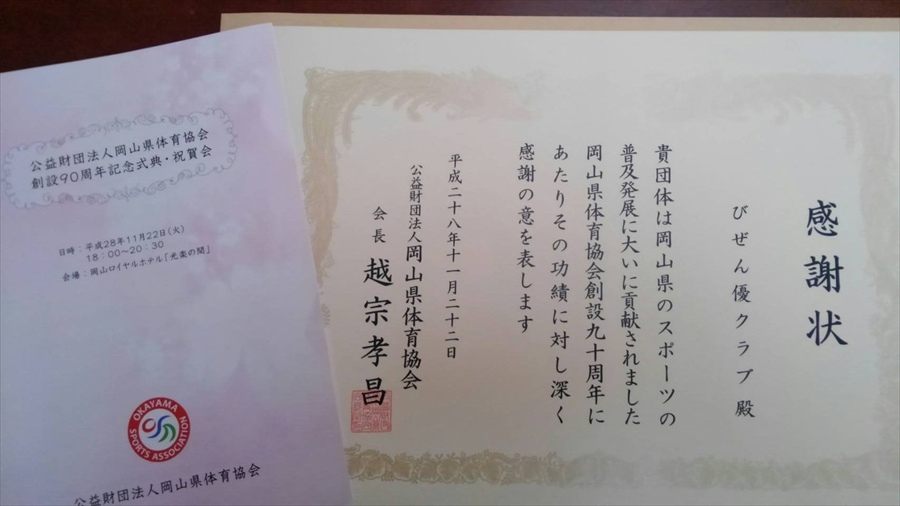 公益財団法人岡山県体育協会
創設90周年記念式典・祝賀会
日時：平成28年11月22日(火)
18：00～20：30
会場：岡山ロイヤルホテル「光楽の間」
OKAYAMA
SPORTS ASSOCIATION
公益財団法人岡山県体育協会
感謝状
びぜん優クラブ殿
貴団体は岡山県のスポーツの
普及発展に大いに貢献されました
岡山県体育協会創設九十周年に
あたりその功績に対し深く
感謝の意を表します
平成二十八年十一月二十二日
公益財団法人岡山県体育協会
会長 越宗孝昌